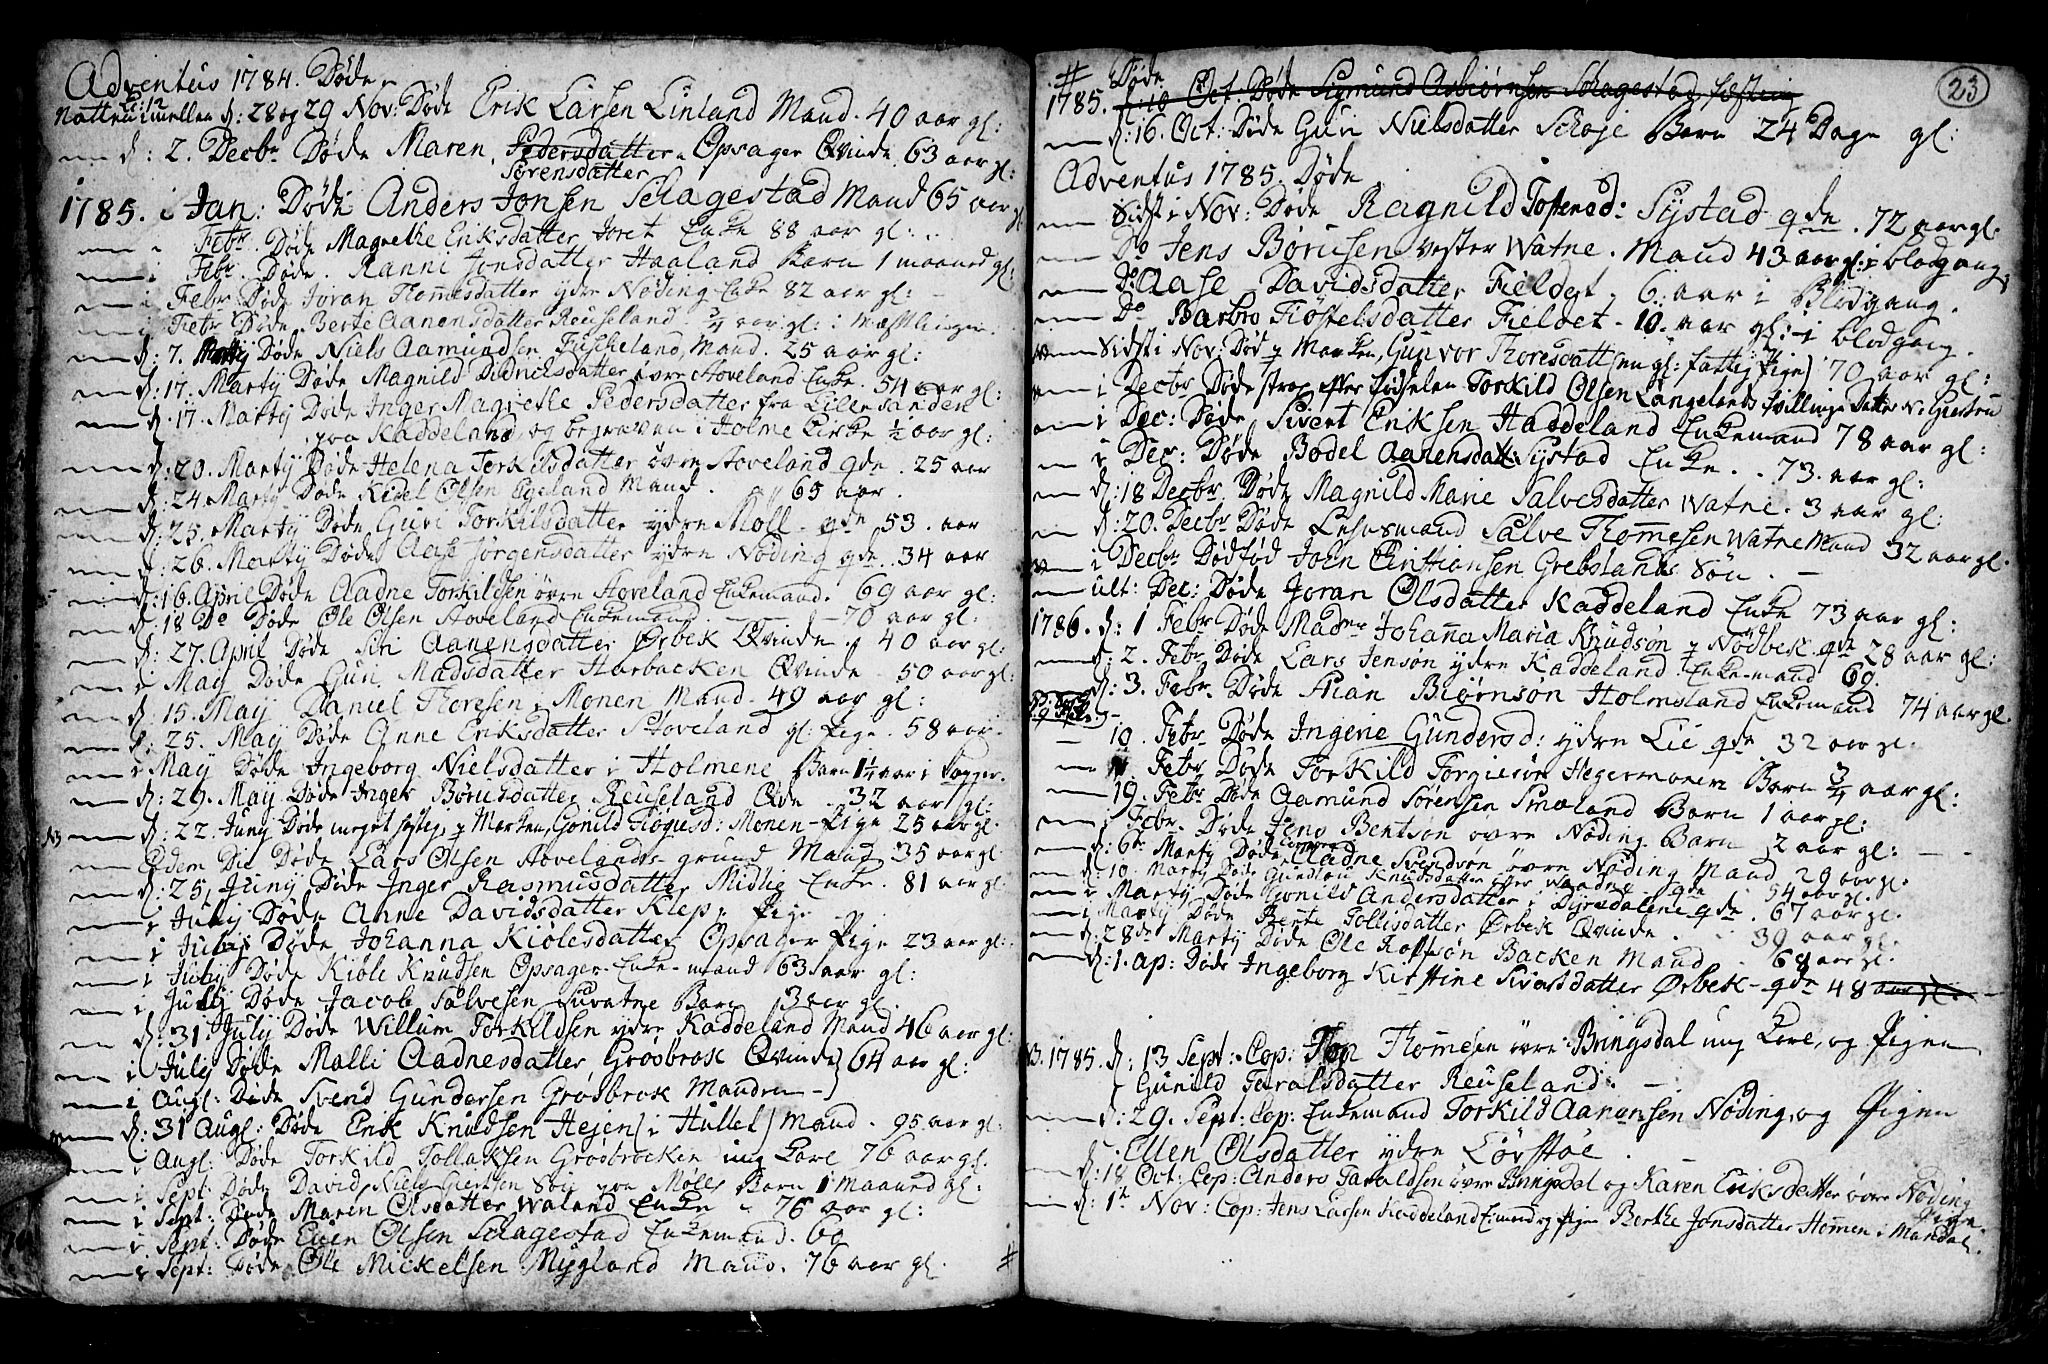 Adventus 1784. Døde
Kl: 12
Natten imellen d: 28 og 29 Nov: Døde Erik Larsen Linland Mand. 40 aar gl:
d: 2. Decbr Døde Maren Pedersdatter Opsager Qvinde 63 aar gl:
Sørensdatter
1785. i Jan: Døde Anders Jonsen Schagestad Mand 65 aar gl:
i Febr. Døde Magrethe Eriksdatter Joret Enke 88 aar gl:
i Febr. Døde. Ranni Jonsdatter Haaland Barn 1 maaned gl:
i Febr Døde Joran Thomesdatter ydre Nøding Enke 82 aar gl:
i Febr Døde Berte Aanensdatter Reuseland aar gl: i Mæslinger.
d: 7. Martij Døde Niels Aamundsen Fuskeland, Mand. 25 aar gl:
d: 17. Martij Døde Magnild Didrichsdatter øvre Hoveland Enke. 54 aar gl:
d: 17. Martij Døde Inger Magrethe Pedersdatter fra Lillesanden
paa Kaddeland, og begraven i Holme Kirke ½ aar gl:
d: 20. Martij Døde Helena Torkilsdatter øvre Hoveland gde. 25 aar
d: 24. Martij Døde Kedel Olsen Egeland Mand. 65 aar.
d: 25. Martij Døde Guri Torkilsdatter ydre Møll gde 53. aar
d: 26. Martij Døde Aase Jørgensdatter ydre Nøding gde. 34 aar
d: 16. April Døde Aadne Torkildsen øvre Hoveland Enkemand. 69 aar gl:
d: 18 Do Døde Ole Olsen Hoveland Enkemand. 70 aar gl:
d: 27. April Døde Siri Aanensdatter Ørbek Qvinde 40 aar gl:
i May Døde Guri Madsdatter Harbacken Qvinde 50 aar gl:
d: 15. May Daniel Thoresen Monen Mand. 49 aar gl:
d: 25. Maij Døde Anne Eriksdatter Hoveland gl: Pige. 58 aar
i Maij Døde Ingeborg Nielsdatter i Holmene Barn 1¼ aar i
d: 29. Maij Døde Inger Børusdatter Reuseland Qde 32 aar gl:
NB d: 22 Junij Døde meget hastig, Gonild Tiøgusd: Monen Pige 25 aar gl.
Eodem Die Døde Lars Olsen Hovelands grund Mand 35 aar gl
d: 25 Junij Døde Inger Rasmusdatter Midlie Enke. 81 aar gl:
i Julij Døde Anne Davidsdatter Klep, Pige
i Julij Døde Johanna Kiølesdatter Opsager Pige 23 aar gl:
i Julij Døde Kiøle Knudsen Opsager Enke-mand 63 aar gl:
i Julij Døde Jacob Salvesen Barn 3 aar gl.
d: 31 Julij Døde Willum Torkildsen ydre Kaddeland Mand 46 aar gl:
i Julij Døde Malli Aadnesdatter Grosbrok Qvinde 64 aar gl:
i Augl: Døde Svend Gundersen Grosbrok Manden
d: 31 Augl: Døde Erik Knudsen Hejen (i Hullet) Mand. 95 aar gl:
i Augl: Døde Torkild Tollaksen Grosbrocken ung Karl 76 aar gl.
i Sept: Døde David Niels Søn paa Møll Barn 1 maaned gl:
i Sept: Døde Maren Olsdatter Waland Enke 76 aar gl:
i Sept: Døde Even Olsen Schagestad Enkemand. 60
i Sept: Døde Ole Mickelsen Mygland Mand. 76 aar gl. #
23
# Døde
1785. d: 10 Oct: Døde Sigmund Asbiørnsen Schagestad
d: 16. Oct: Døde Guri Nielsdatter Schoje Barn 24 Dage gl:
Adventus 1785. Døde
Sidst i Nov: Døde Ragnild Tostensd: Systad gde. 72 aar gl.
Do Jens Børusen vester Watne. Mand 43 aar gl: i blodgang
Do Aase Davidsdatter Fieldet 6. aar i Blodgang.
Do Barbro Tiøstelsdatter Fieldet 10. aar gl: i blodgang
Sidst i Nov: Døde Gunvor Thoresdatt (en gl: fattig Pige) 70 aar gl:
i Decbr Døde strax efter Fødselen Torkild Olsen Langelands Tvillinge Datter
i Dec: Døde Sivert Eriksen Haddeland Enkemand 78 aar gl:
i Dec: Døde Bodel Aanensdatt: Systad Enke. 73. aar gl:
d: 18 Decbr Døde Magnild Marie Salvesdatter Watne. 3 aar gl:
d: 20. Decbr Døde Lehnsmand Salve Thomesen Watne Mand 32 aar gl.
i Decbr Dødfød John Christiansen Grebslands Søn.
ult: Dec: Døde Joran Olsdatter Kaddeland Enke 73 aar gl:
1786. d: 1 Febr Døde Madme Johanna Maria Knudsøn Nødbek gde 28 aar gl:
d: 2. Febr Døde Lars Jensøn ydre Kaddeland Enke-mand 60.
d: 3. Febr. Døde Stian Biørnson Holmsland Enkemand 74 aar gl.
10. Febr Døde Ingerie Gundersd: ydre Lie gde 32 aar gl.
Febr Døde Torkild Torgiesøn Hegermonen Barn ¾ aar gl:
19. Febr Døde Aamund Sørensen Smaland Barn 1 aar gl:
i Febr. Døde Jens Bentsøn øvre Nøding Barn 2 aar gl:
d: 6te Martij Døde Aadne Svendsøn øvre Nøding Mand 29 aar gl.
d: 10. Martij Døde Gundlou Knudsdatter gde 54 aar gl.
i Martij Døde Gonild Andersdatter i Dyresdalene gde. 67 aar gl.
i Martij Døde Berte Tollisdatter Ørbek Qvinde. 39 aar gl.
d: 28de Martij Døde Ole Rolfsøn Backen Mand 68 aar gl.
d: 1. Ap: Døde Ingeborg Kirstine Sivertsdatter Ørbek gde 48 aar gl.
1785. d: 13 Sept: Cop: Thomesen øvre Bringsdal ung Karl, og Pigen
Gunild Taralsdatter Reuseland.
d: 29. Sept: Cop: Enkemand Torkild Aanensen Nøding, og Pigen
Ellen Olsdatter ydre Lørstøe.
d: 18 Oct: Cop: Anders Taraldsen øvre Bringsdal og Karen Eriksdatter øvre Nøding
Pige.
d: 1te Nov: Cop: Jens Larsen Kaddeland og Pigen Berthe Jonsdatter Homen i Mandal.